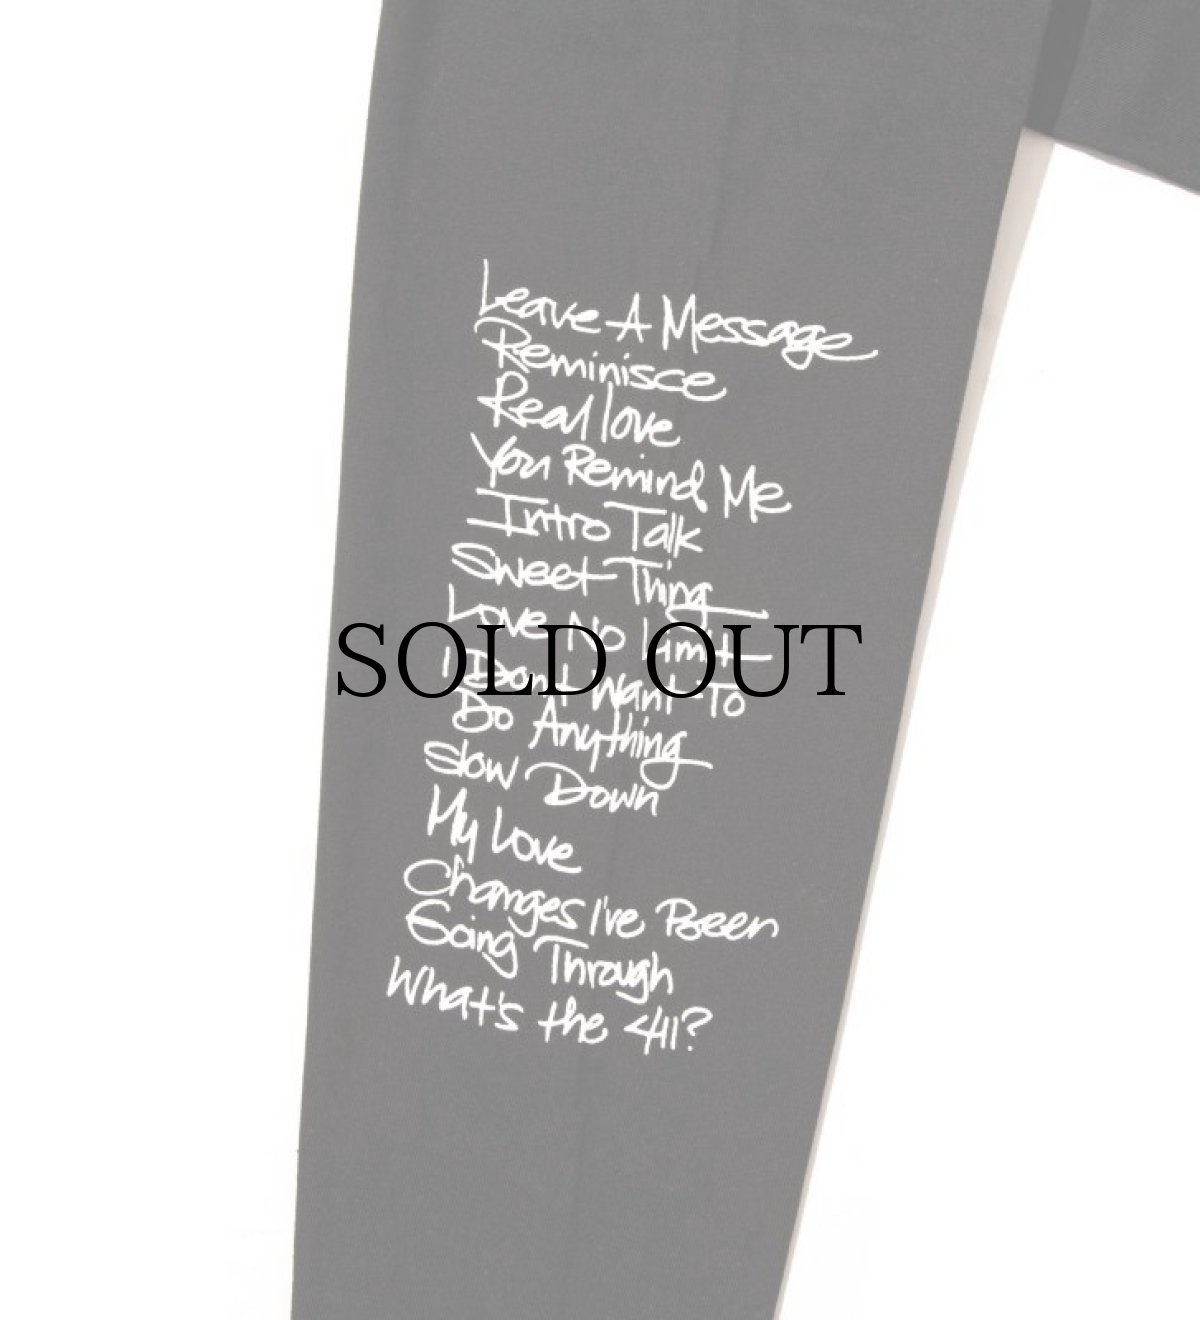 Leave A Message
Reminisce
Real love
You Remind Me
Intro Talk
Sweet Thing
Love No Limit
SOLD OUT
I Don't Want To
Do Anything
Slow Down
My Love
Changes I've Been
Going Through
What's the 411?